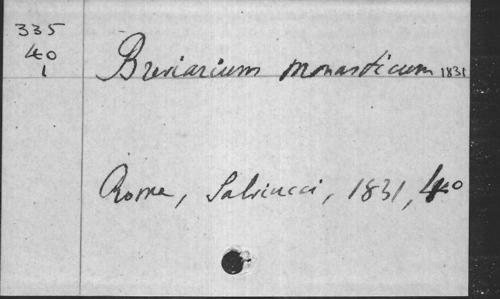 335
40
1
Breviarium monasticum 1831
Rome, Salviucci, 1831, 4o